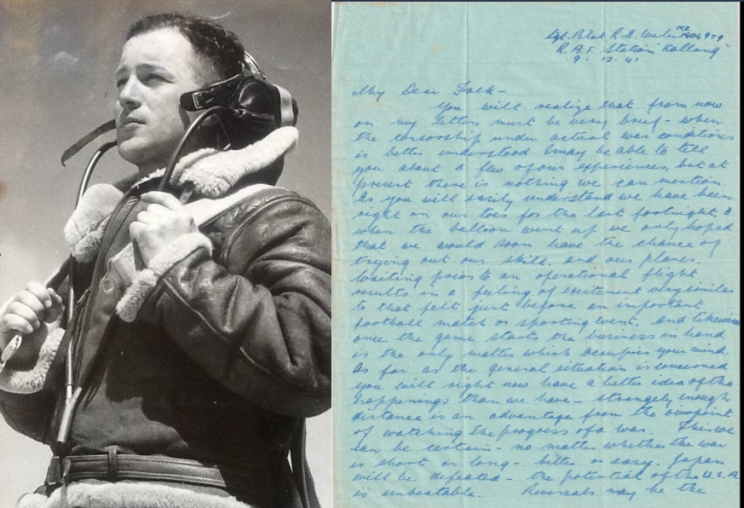 Sgt. Pilot R.S. NZ
R.A.F. Station "Kallang"
9. 12. 41
My Dear Folk -
You will realize that from now
on my letters must be very brief - when
the censorship under actual war conditions
is better understood I may be able to tell
you about a few of our experiences, but at
present there is nothing we can mention.
As you will easily understand we have been
right on our toes for the last fortnight &
when the balloon went up we only hoped
that we would soon have the chance of
trying out our skill, and our planes.
Waiting prior to an operational flight
results in a feeling of excitement very similar
to that felt just before an important
football match or sporting event, and likewise
once the game starts the business in hand
is the only matter which occupies your mind.
As far as the general situation is concerned
you will right now have a better idea of the
happenings than we have - strangely enough
distance is an advantage from the viewpoint
of watching the progress of a war. This we
can be certain - no matter whether the war
is short or long - bitter or easy. Japan
will be defeated - the potential of the U.S.A
is unbeatable. Reversals may be the